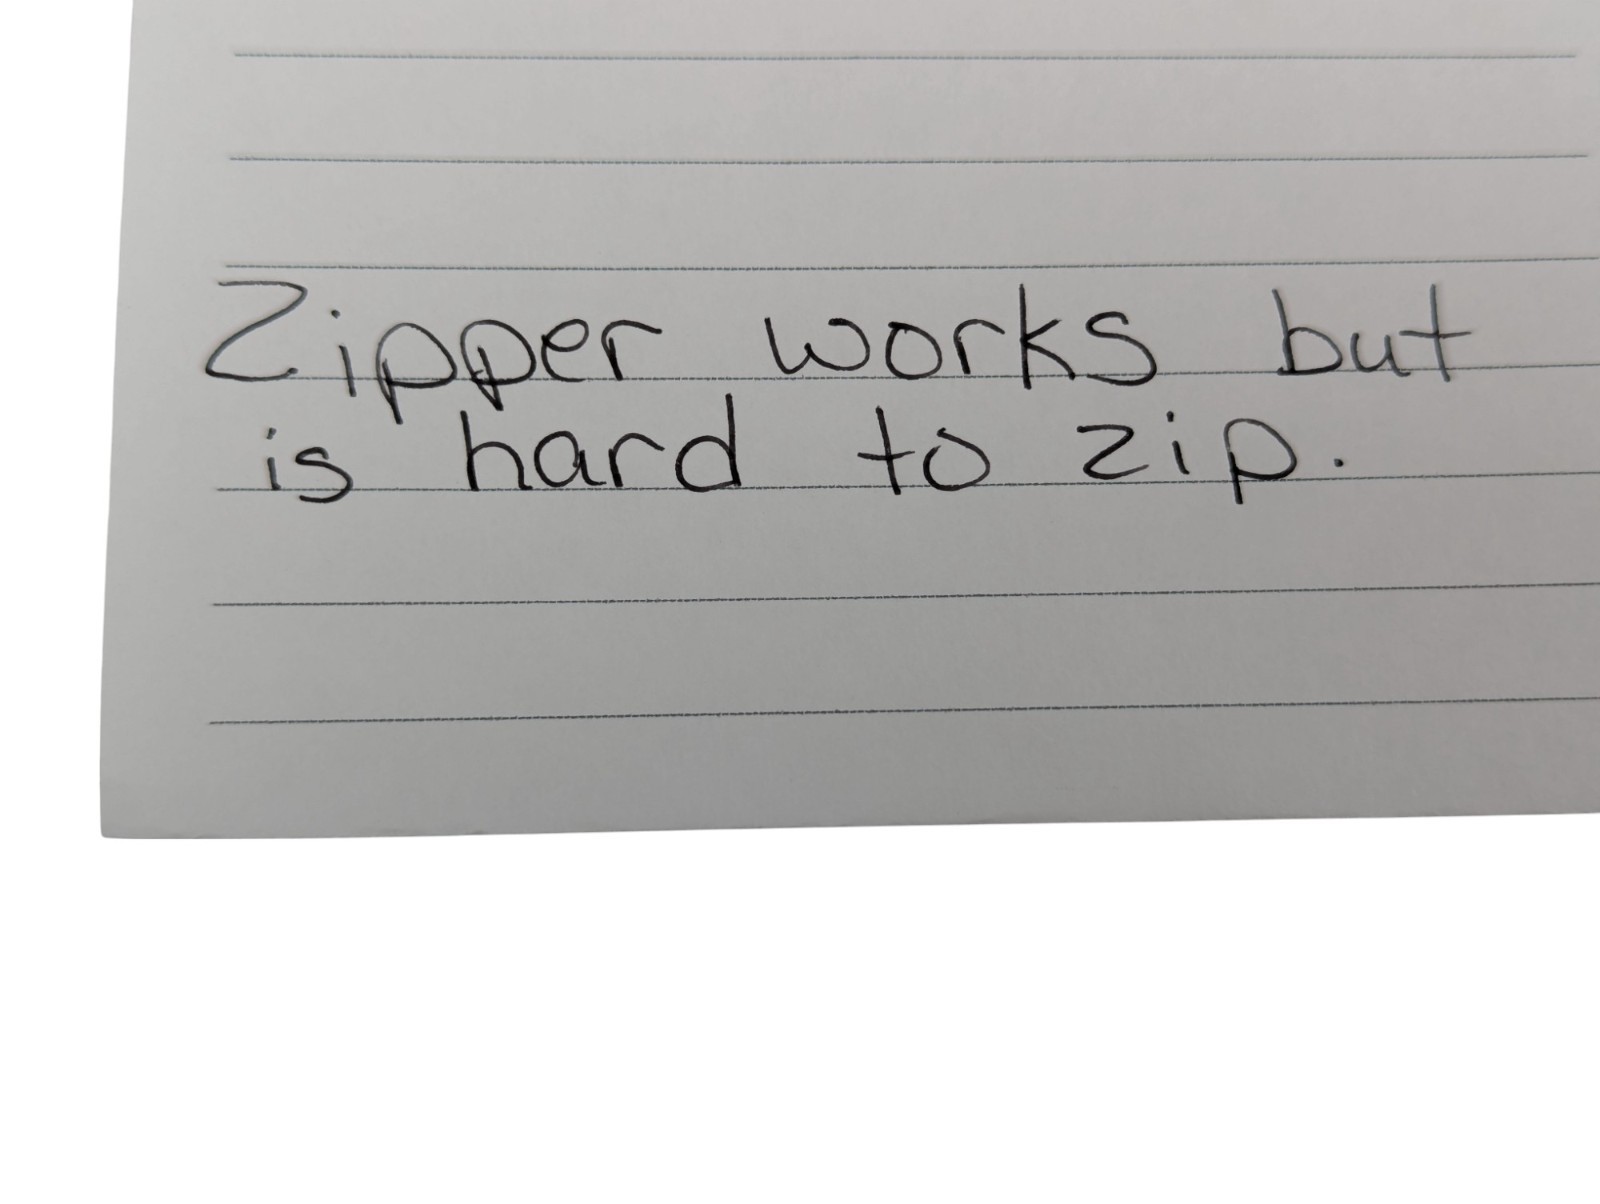 Zipper works but
is hard to zip.